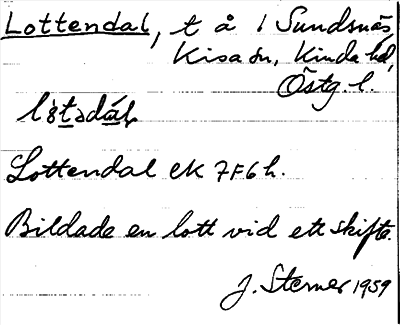 Lottendal, t å / Sundsnäs,
Kisa sn, Kinda hd,
Östg. l.
Lottendal ek 7F6h.
Bildade en lott vid ett skifte.
J. Sterner 1959